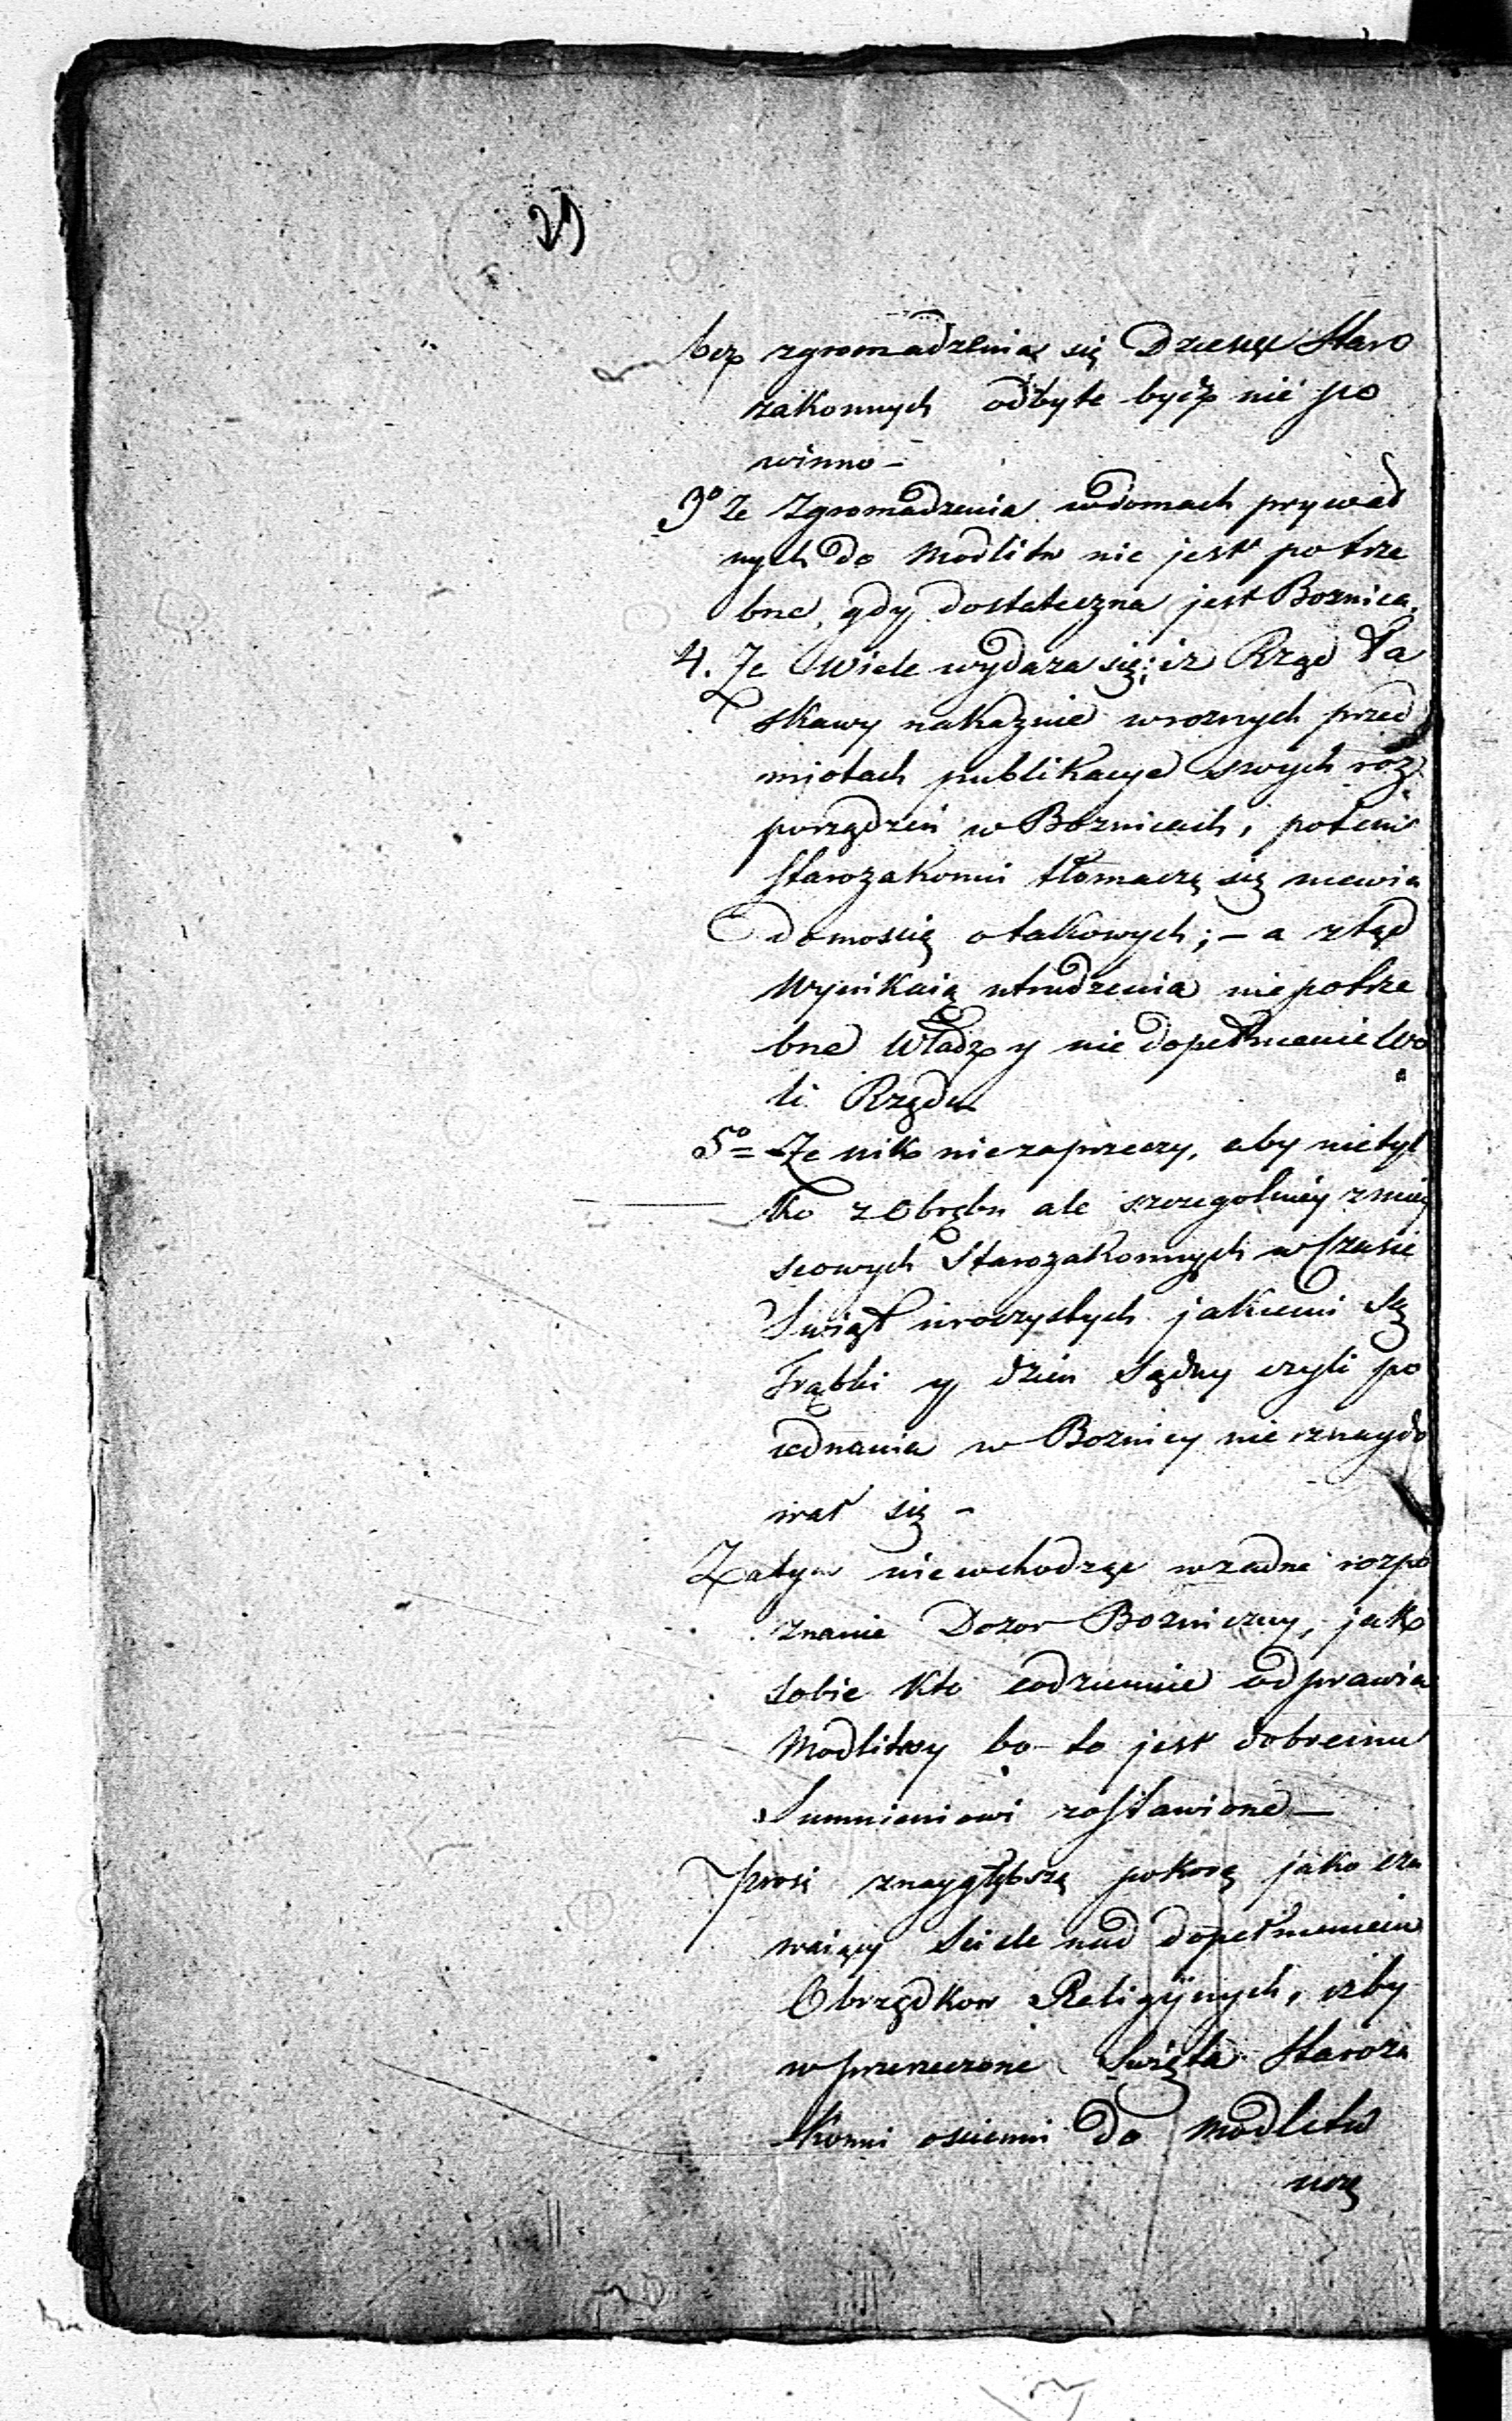 29
bez zgromadzenia się Dziesięć Staro
zakonnych odbyte bydź nie po
winno –
3º Ze Zgromadzenia wdomach prywat
nych do Modlitw nie jest potrze
bne, gdy dostateczna jest Boznica.
4. Ze Wiele wydaza się; iz Rząd Ła
skawy nakazuie wroznych przed
miotach publikacye swych roz
porządzeń w Boznicach, potem
Starozakonni tłomaczą się niewia
domoscią otakowych; – a ztąd
Wynikaią utrudzenia niepotrze
bne Władzy y nie dopełnienie Wo
li Rządu
5º Ze nikt niezaprzeczy, aby nietyl
ko zObrębu ale szczegolniey zmiey
scowych Starozakonnych w Czasie
Swiąt uroczystych jakiemi Są
Trąbki y dzien Sądny czyli po
iednania w Boznicy nie znaydo
wał się –
Zatym niewchodząc wzadne rozpo
znanie Dozor Bozniczny, jak
sobie Kto codziennie odprawia
Modlitwy bo to jest dobremu
Sumnieniowi zostawione –
prosi znaygłębszą pokorą jako czu
waiący Scisle nad dopełnieniem
Obrządkow Religijnych, izby
w przerzeczone Swięta Staroza
konni oscienni do Modlitw